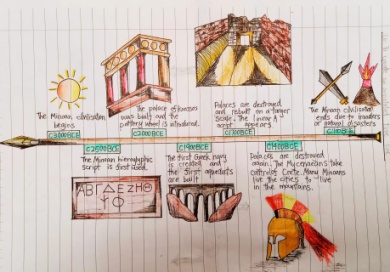 The Minoan civilisation
begins.
C3000BCE
The palace of Knossos
was built and the
pottery wheel is introduced.
C2000BCE
Palaces are destroyed
and rebuilt on a larger
scale. The linear A
script appears.
The Minoan civilisation
ends due to invaders
or natural disasters
C2500BCE
The Minoan hieroglyphic
script is first used.
ΑΒΓΔΕΖΗΘ
ΨΦ
The first Greek navy
is created and
the first aqueducts
are built
Palaces are destroyed
again. The Mycenaeans take
control of Crete. Many Minoans
live the cities to live
in the mountains.